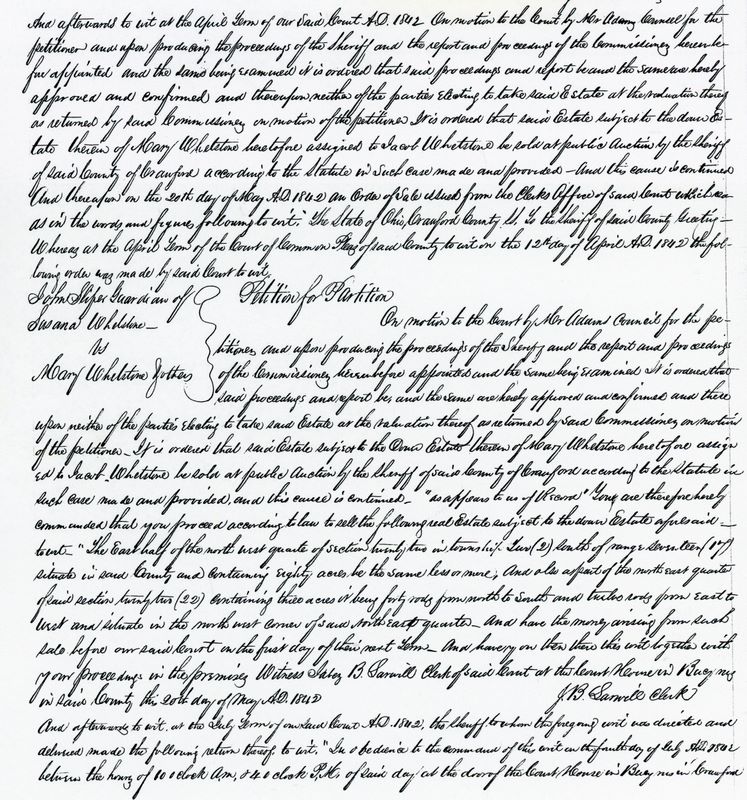 And afterwards to wit at the April Term of our Said Court A.D. 1842 On motion to the Court by Mr Adams Counsel for the
petitioner and upon producing the proceedings of the Sheriff and the report and proceedings of the Commissioners hereinbe-
fore appointed and the same being examined it is ordered that said proceedings and report be and the same are hereby
approved and confirmed and thereupon neither of the parties Electing to take said Estate at the valuation thereof
as returned by said Commissioners on motion of the petitioner It is ordered that said Estate subject to the dower Es-
tate therein of Mary Whetstone heretofore assigned to Jacob Whetstone be sold at public Auction by the Sheriff
of said County of Crawford according to the Statute in Such case made and provided - And this cause is continued
And thereupon on the 20th day of May A.D. 1842 an Order of Sale issued from the Clerks Office of said Court which was
as in the words and figures following to wit, "The State of Ohio, Crawford County SS. To the Sheriff of said County Greeting -
Whereas at the April Term of the Court of Common Pleas of said County to wit on the 12th day of April A.D. 1842 the fol-
lowing order was made by said Court to wit,
John Sliper Guardian of
Susana Whetstone -
vs
Mary Whetstone & others
Petition for Partition
On motion to the Court by Mr Adams Council for the pe-
titioner and upon producing the proceedings of the Sheriff and the report and proceedings
of the Commissioners hereinbefore appointed and the same being Examined It is ordered that
said proceedings and report be and the same are hereby approved and confirmed and there
upon neither of the parties Electing to take said Estate at the valuation thereof as returned by said Commissioners on motion
of the petitioner. It is ordered that said Estate subject to the Dower Estate therein of Mary Whetstone heretofore assign
ed to Jacob Whetstone be sold at public Auction by the Sheriff of said County of Crawford according to the Statute in
such case made and provided, and this cause is continued - "as appears to us of Record" You are therefore hereby
commanded that you proceed according to law to sell the following real Estate subject to the dower Estate aforesaid -
to wit - "The East half of the north west quarter of section twenty two in township Two (2) South of range seventeen (17)
situate in said County and containing Eighty acres be the same less or more; And also a part of the north east quarter
of said section twenty two (22) containing three acres it being forty rods from north to South and twelve rods from East to
West and situate in the north west corner of said North East quarter - And have the money arising from such
sale before our said Court on the first day of their next Term - And have you then there this writ together with
your proceedings in the premises Witness B. Sarvill Clerk of said Court at the Court House in Bucyrus
in said County this 20th day of May A.D. 1842
J. B. Sarvill Clerk
And afterwards to wit, at the July Term of our said Court A.D. 1842, the Sheriff to whom the foregoing writ was directed and
delivered made the following return thereof to wit, "In obedience to the command of this writ on the fourth day of July A.D. 1842
between the hours of 10 o clock A.M. & 4 o clock P.M. of said day at the door of the Court House in Bucyrus in Crawford